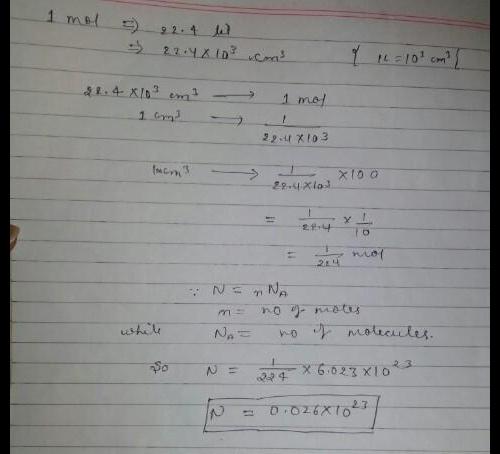 1 mol ⇒ 22.4 lit
⇒ 22.4 × 10³ cm³ { 1L = 10³ cm³ }
22.4 × 10³ cm³ ⟶ 1 mol
1 cm³ ⟶ 1 / 22.4 × 10³
100 cm³ ⟶ 1 / 22.4 × 10³ × 100
= 1 / 22.4 × 1 / 10
= 1 / 224 mol
∵ N = n N_A
n = no of moles
while N_A = no of molecules.
So N = 1 / 224 × 6.023 × 10²³
N = 0.026 × 10²³